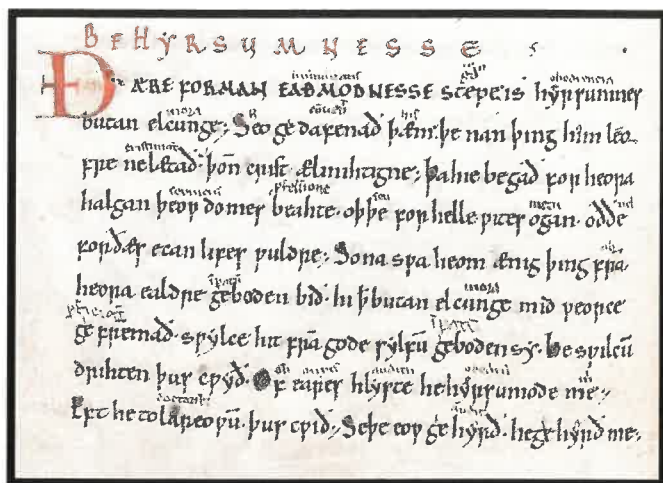 BEHẎRSUMNESSE
obedientia
ÐÆRE FORMAN EADMODNESSE stepe is hẏrsumnes
mora
butan elcunge; Seo gedafenað þæm þe nan þing him leo-
fre ne lætað þoñ crist ælmihtigne; Þa hie begað for heora
halgan þeoƿdomes behate oþþe for helle ƿites ogan oððe
for ðæs ecan lifes ƿuldre; Sona sƿa heom ænig þing frā
mora
heora ealdre geboden bið hi ꝥ butan elcunge mid ƿeorce
gefremað sƿẏlce hit frā gode sẏlfū geboden sẏ. be sƿilcū
drihten þus cƿẏð. Of eares hlẏste he hẏrsumode me;
Eft he to lareoƿū þus cƿið; Seþe eoƿ gehẏrð. he gehẏrð me.